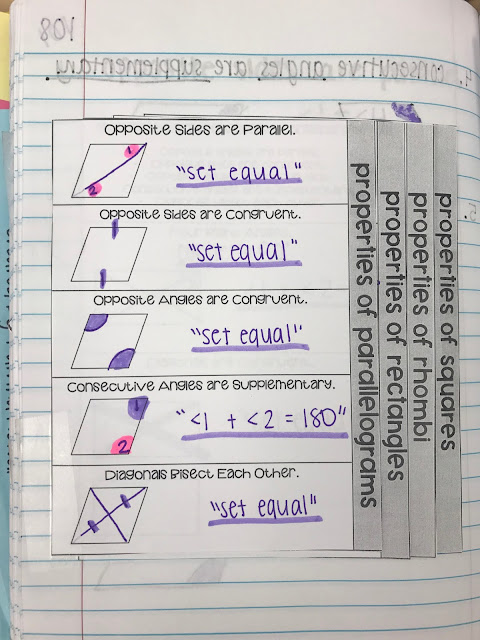 108
4. consecutive angles are supplementary
Opposite Sides are Parallel.
1
2
"set equal"
Opposite Sides are Congruent.
"set equal"
Opposite Angles are Congruent.
"set equal"
Consecutive Angles are Supplementary.
1
2
"<1 + <2 = 180"
Diagonals Bisect Each Other.
"set equal"
properties of parallelograms
properties of rectangles
properties of rhombi
properties of squares
5.